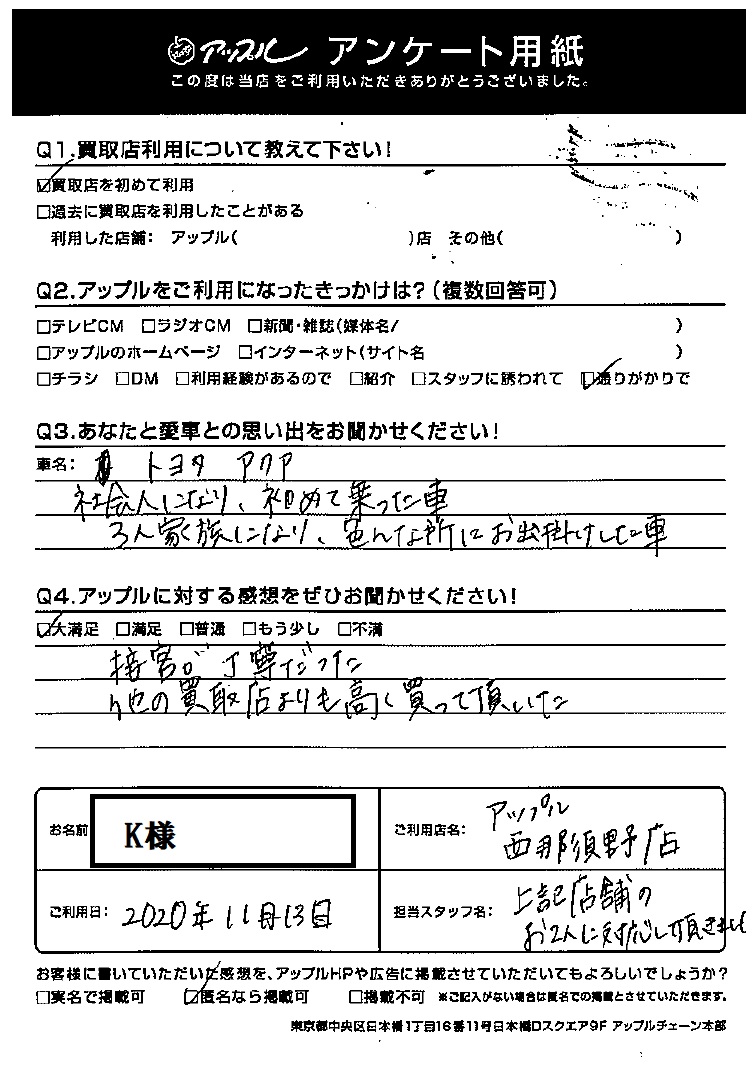 アップル アンケート用紙
この度は当店をご利用いただきありがとうございました。
Q1.買取店利用について教えて下さい!
☑買取店を初めて利用
□過去に買取店を利用したことがある
利用した店舗: アップル( )店 その他( )
Q2.アップルをご利用になったきっかけは?(複数回答可)
□テレビCM □ラジオCM □新聞・雑誌(媒体名/ )
□アップルのホームページ □インターネット(サイト名 )
□チラシ □DM □利用経験があるので □紹介 □スタッフに誘われて ☑通りがかりで
Q3.あなたと愛車との思い出をお聞かせください!
車名: トヨタ アクア
社会人になり、初めて乗った車
3人家族になり、色んな所にお出掛けした車
Q4.アップルに対する感想をぜひお聞かせください!
☑大満足 □満足 □普通 □もう少し □不満
接客が丁寧だった
他の買取店よりも高く買って頂いた
お名前 K様
ご利用店名: アップル
西那須野店
ご利用日: 2020年11月13日
担当スタッフ名: 上記店舗の
お2人に対応して頂きました
お客様に書いていただいた感想を、アップルHPや広告に掲載させていただいてもよろしいでしょうか?
□実名で掲載可 ☑匿名なら掲載可 □掲載不可 ※ご記入がない場合は匿名での掲載とさせていただきます。
東京都中央区日本橋1丁目16番11号日本橋Dスクエア9F アップルチェーン本部